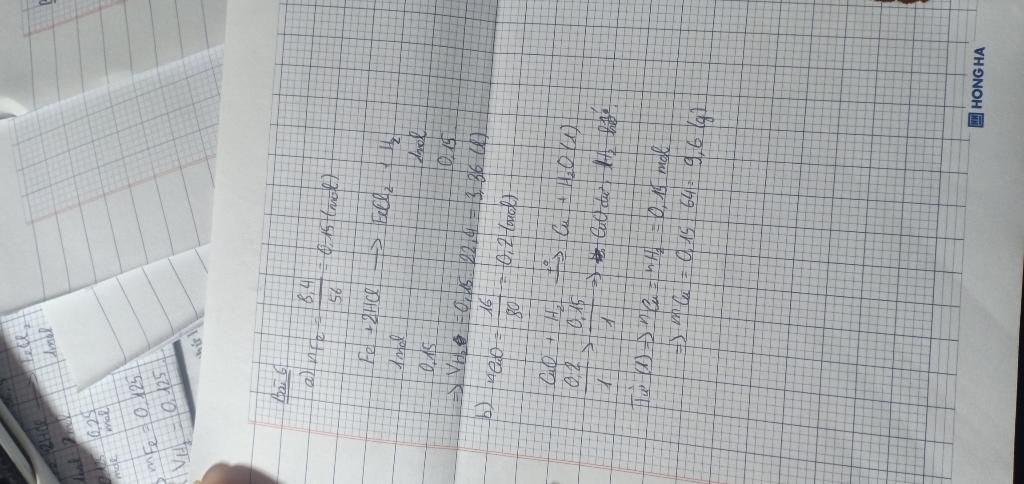 Bài 6
a) nFe = 8,4/56 = 0,15 (mol)
Fe + 2HCl → FeCl2 + H2
1mol 1mol
0,15 0,15
=> VH2 = 0,15 . 22,4 = 3,36 (l)
b) nCuO = 16/80 = 0,2 (mol)
CuO + H2 t°→ Cu + H2O (1)
0,2/1 > 0,15/1 => CuO dư H2 hết
Từ (1) => nCu = nH2 = 0,15 mol
=> mCu = 0,15 . 64 = 9,6 (g)
HONG HA
2HCl
1mol
0,25
mol
=> mFe = 0,125
VH2 = 0,125